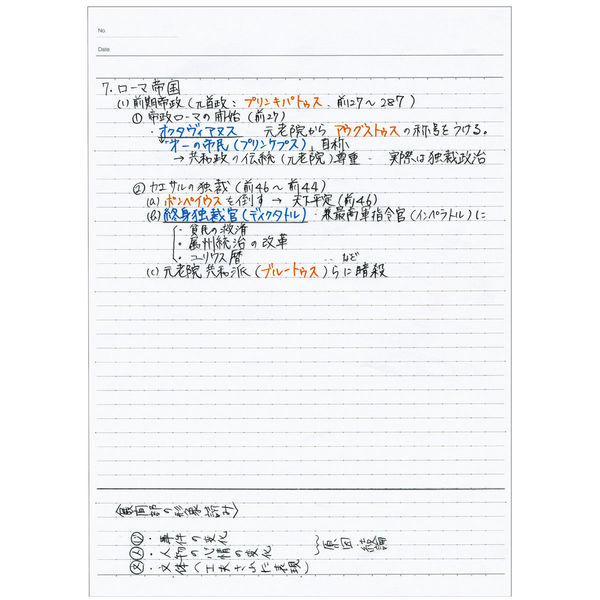 No.
Date
7. ローマ帝国
(1) 前期帝政(元首政: プリンキパトゥス. 前27〜287)
① 帝政ローマの開始(前27)
・オクタヴィアヌス 元老院から アウグストゥスの称号をうける。
オーの市民(プリンケプス)自称
→ 共和政の伝統(元老院)尊重・ 実際は独裁政治
② カエサルの独裁(前46〜前44)
(a) ポンペイウスを倒す → 天下平定(前46)
(b) 終身独裁官(ディクタトル)・兼最高軍指令官(インペラトル)に
・貧民の救済
・属州統治の改革
・ユリウス暦 など
(c) 元老院共和派(ブルートゥス)らに暗殺
・事件の変化
・人物の心情の変化
・文体(工夫された表現)
原因